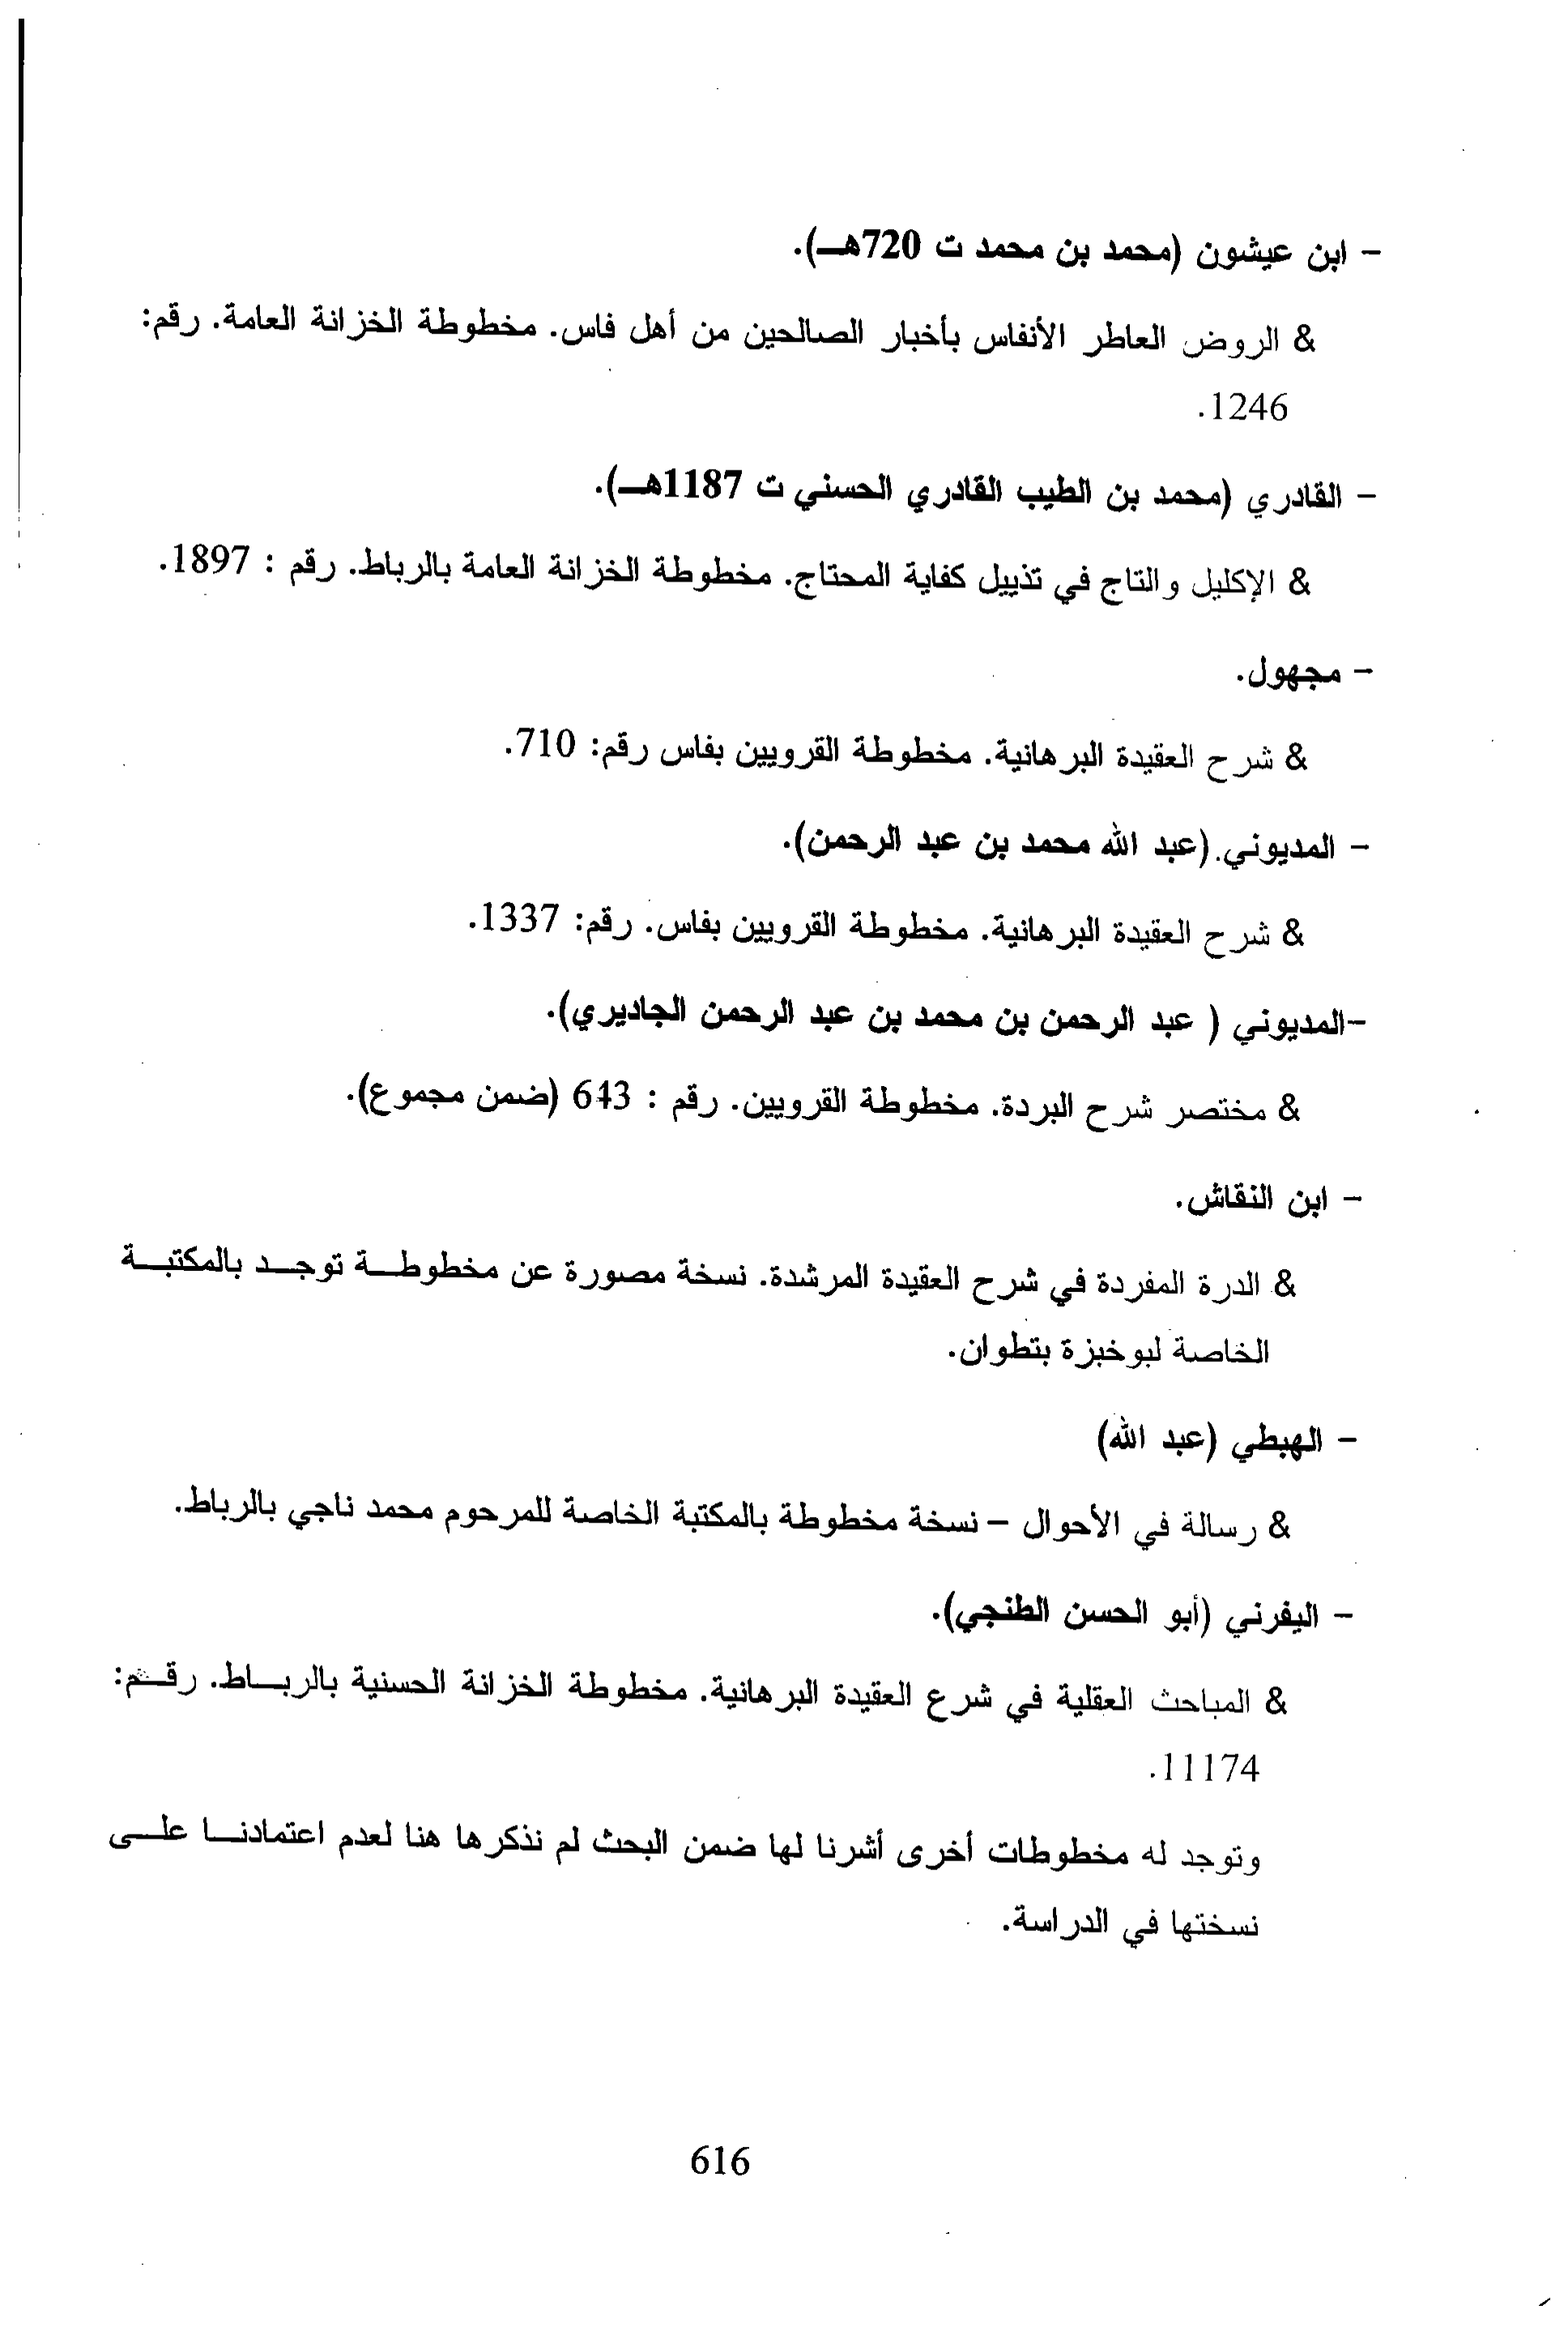 - ابن عيشون (محمد بن محمد ت 720هـ).
& الروض العاطر الأنفاس بأخبار الصالحين من أهل فاس. مخطوطة الخزانة العامة. رقم:
1246.
- القادري (محمد بن الطيب القادري الحسني ت 1187هـ).
& الإكليل والتاج في تذييل كفاية المحتاج. مخطوطة الخزانة العامة بالرباط. رقم : 1897.
- مجهول.
& شرح العقيدة البرهانية. مخطوطة القرويين بفاس رقم: 710.
- المديوني.(عبد الله محمد بن عبد الرحمن).
& شرح العقيدة البرهانية. مخطوطة القرويين بفاس. رقم: 1337.
-المديوني ( عبد الرحمن بن محمد بن عبد الرحمن الجاديري).
& مختصر شرح البردة. مخطوطة القرويين. رقم : 643 (ضمن مجموع).
- ابن النقاش.
& الدرة المفردة في شرح العقيدة المرشدة. نسخة مصورة عن مخطوطـة توجـد بالمكتبـة
الخاصة لبوخبزة بتطوان.
- الهبطي (عبد الله)
& رسالة في الأحوال - نسخة مخطوطة بالمكتبة الخاصة للمرحوم محمد ناجي بالرباط.
- اليفرني (أبو الحسن الطنجي).
& المباحث العقلية في شرع العقيدة البرهانية. مخطوطة الخزانة الحسنية بالربـاط. رقـم:
11174.
وتوجد له مخطوطات أخرى أشرنا لها ضمن البحث لم نذكرها هنا لعدم اعتمادنـا علـى
نسختها في الدراسة.
616